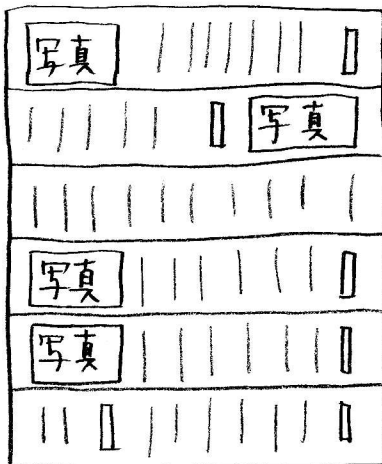 写真
写真
写真
写真